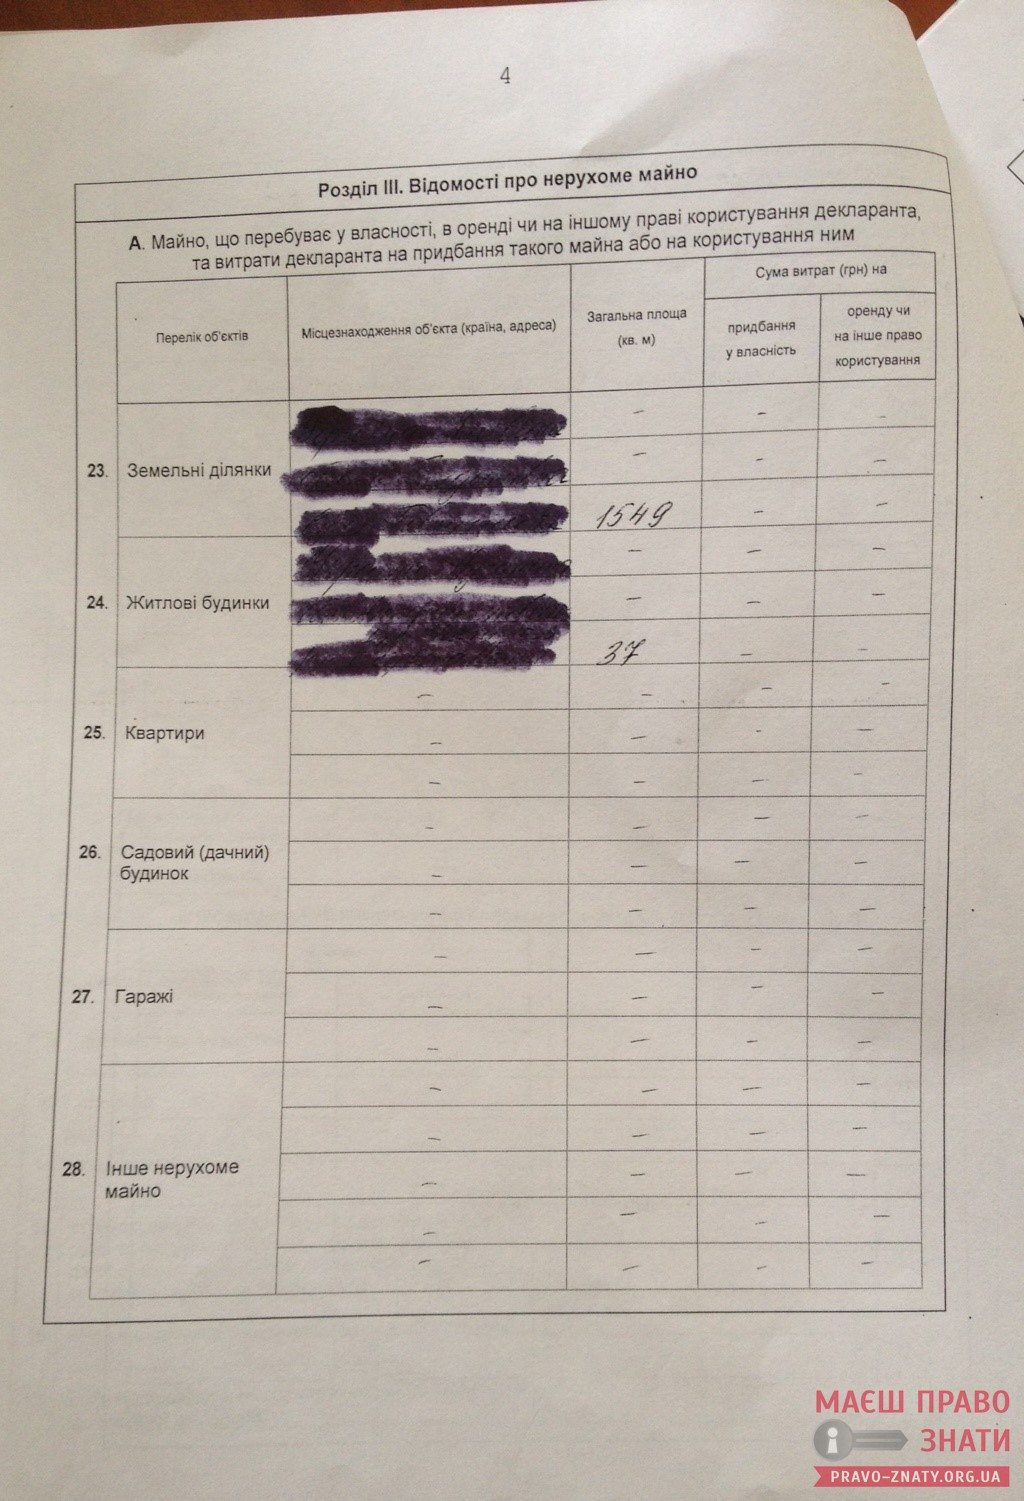 4
Розділ III. Відомості про нерухоме майно
А. Майно, що перебуває у власності, в оренді чи на іншому праві користування декларанта,
та витрати декларанта на придбання такого майна або на користування ним
Перелік об'єктів
Місцезнаходження об'єкта (країна, адреса)
Загальна площа
(кв. м)
Сума витрат (грн) на
придбання
у власність
оренду чи
на інше право
користування
– – –
23. Земельні ділянки – – –
1549 – –
– – –
24. Житлові будинки – – –
37 – –
– – – –
25. Квартири – – – –
– – – –
– – – –
26. Садовий (дачний)
будинок – – – –
– – – –
– – – –
27. Гаражі – – – –
– – – –
– – – –
– – – –
28. Інше нерухоме
майно – – – –
– – – –
– – – –
МАЄШ ПРАВО
ЗНАТИ
PRAVO-ZNATY.ORG.UA